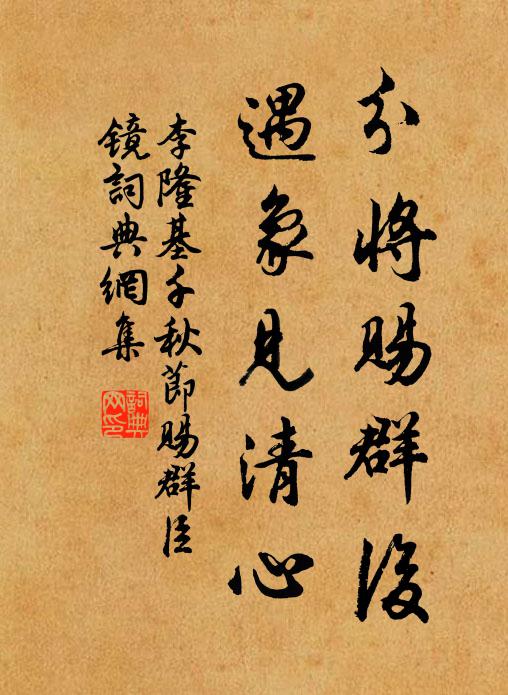 分將賜群後
遇象見清心
李隆基千秋節賜群臣
鏡詞典網集
詞典
网印